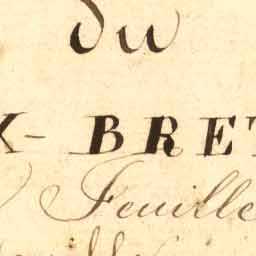 du
X - BRET
Feuille